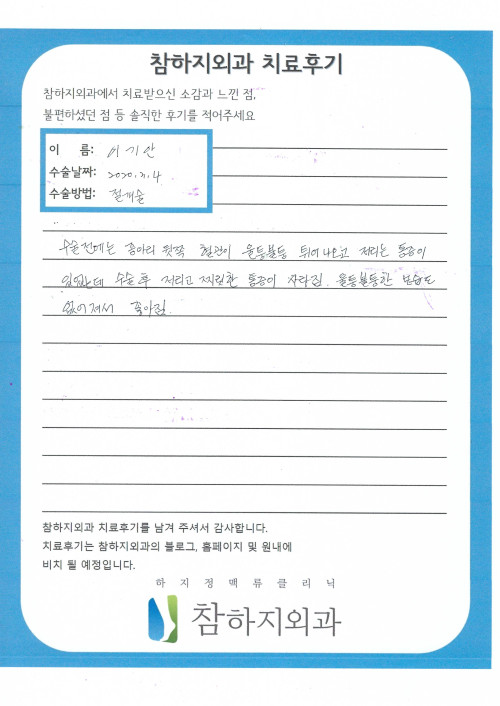 참하지외과 치료후기
참하지외과에서 치료받으신 소감과 느낀 점,
불편하셨던 점 등 솔직한 후기를 적어주세요
이 름: 이기산
수술날짜: 2020.2.4
수술방법: 절개술
수술전에는 종아리 뒷쪽 혈관이 울퉁불퉁 튀어나오고 저리는 통증이
있었는데 수술 후 저리고 찌릿한 통증이 사라짐. 울퉁불퉁한 모습도
없어져서 좋아짐.
참하지외과 치료후기를 남겨 주셔서 감사합니다.
치료후기는 참하지외과의 블로그, 홈페이지 및 원내에
비치 될 예정입니다.
하지정맥류클리닉
참하지외과